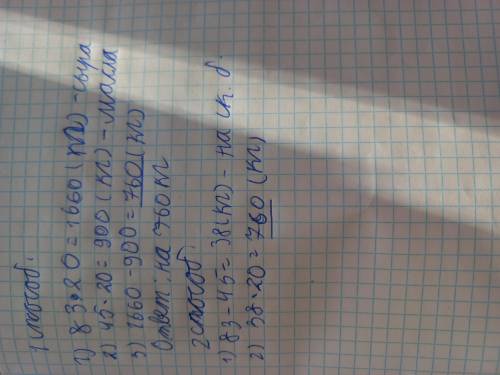 1 способ:
1) 83·20=1660(кг)-сыра
2) 45·20=900(кг)-масла
3) 1660-900=760(кг)
Ответ: на 760 кг
2 способ:
1) 83-45=38(кг)-на ск. б.
2) 38·20=760(кг)